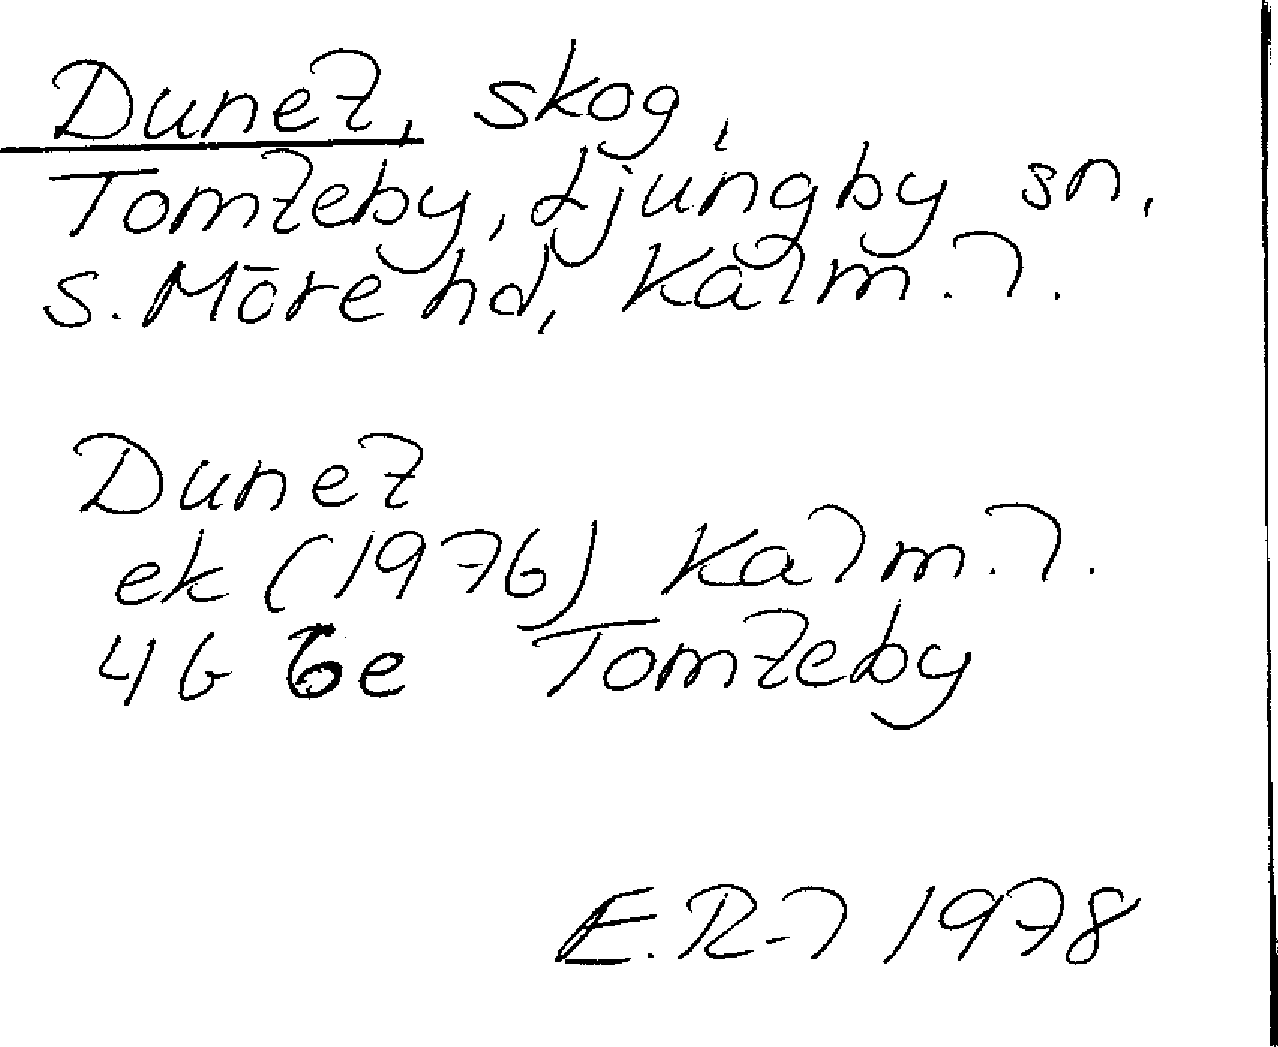 Dunet, skog,
Tomteby, Ljungby sn,
S. Möre hd, Kalm. l.
Dunet
ek (1976) Kalm. l.
4G 6e Tomteby
E.R-l 1978